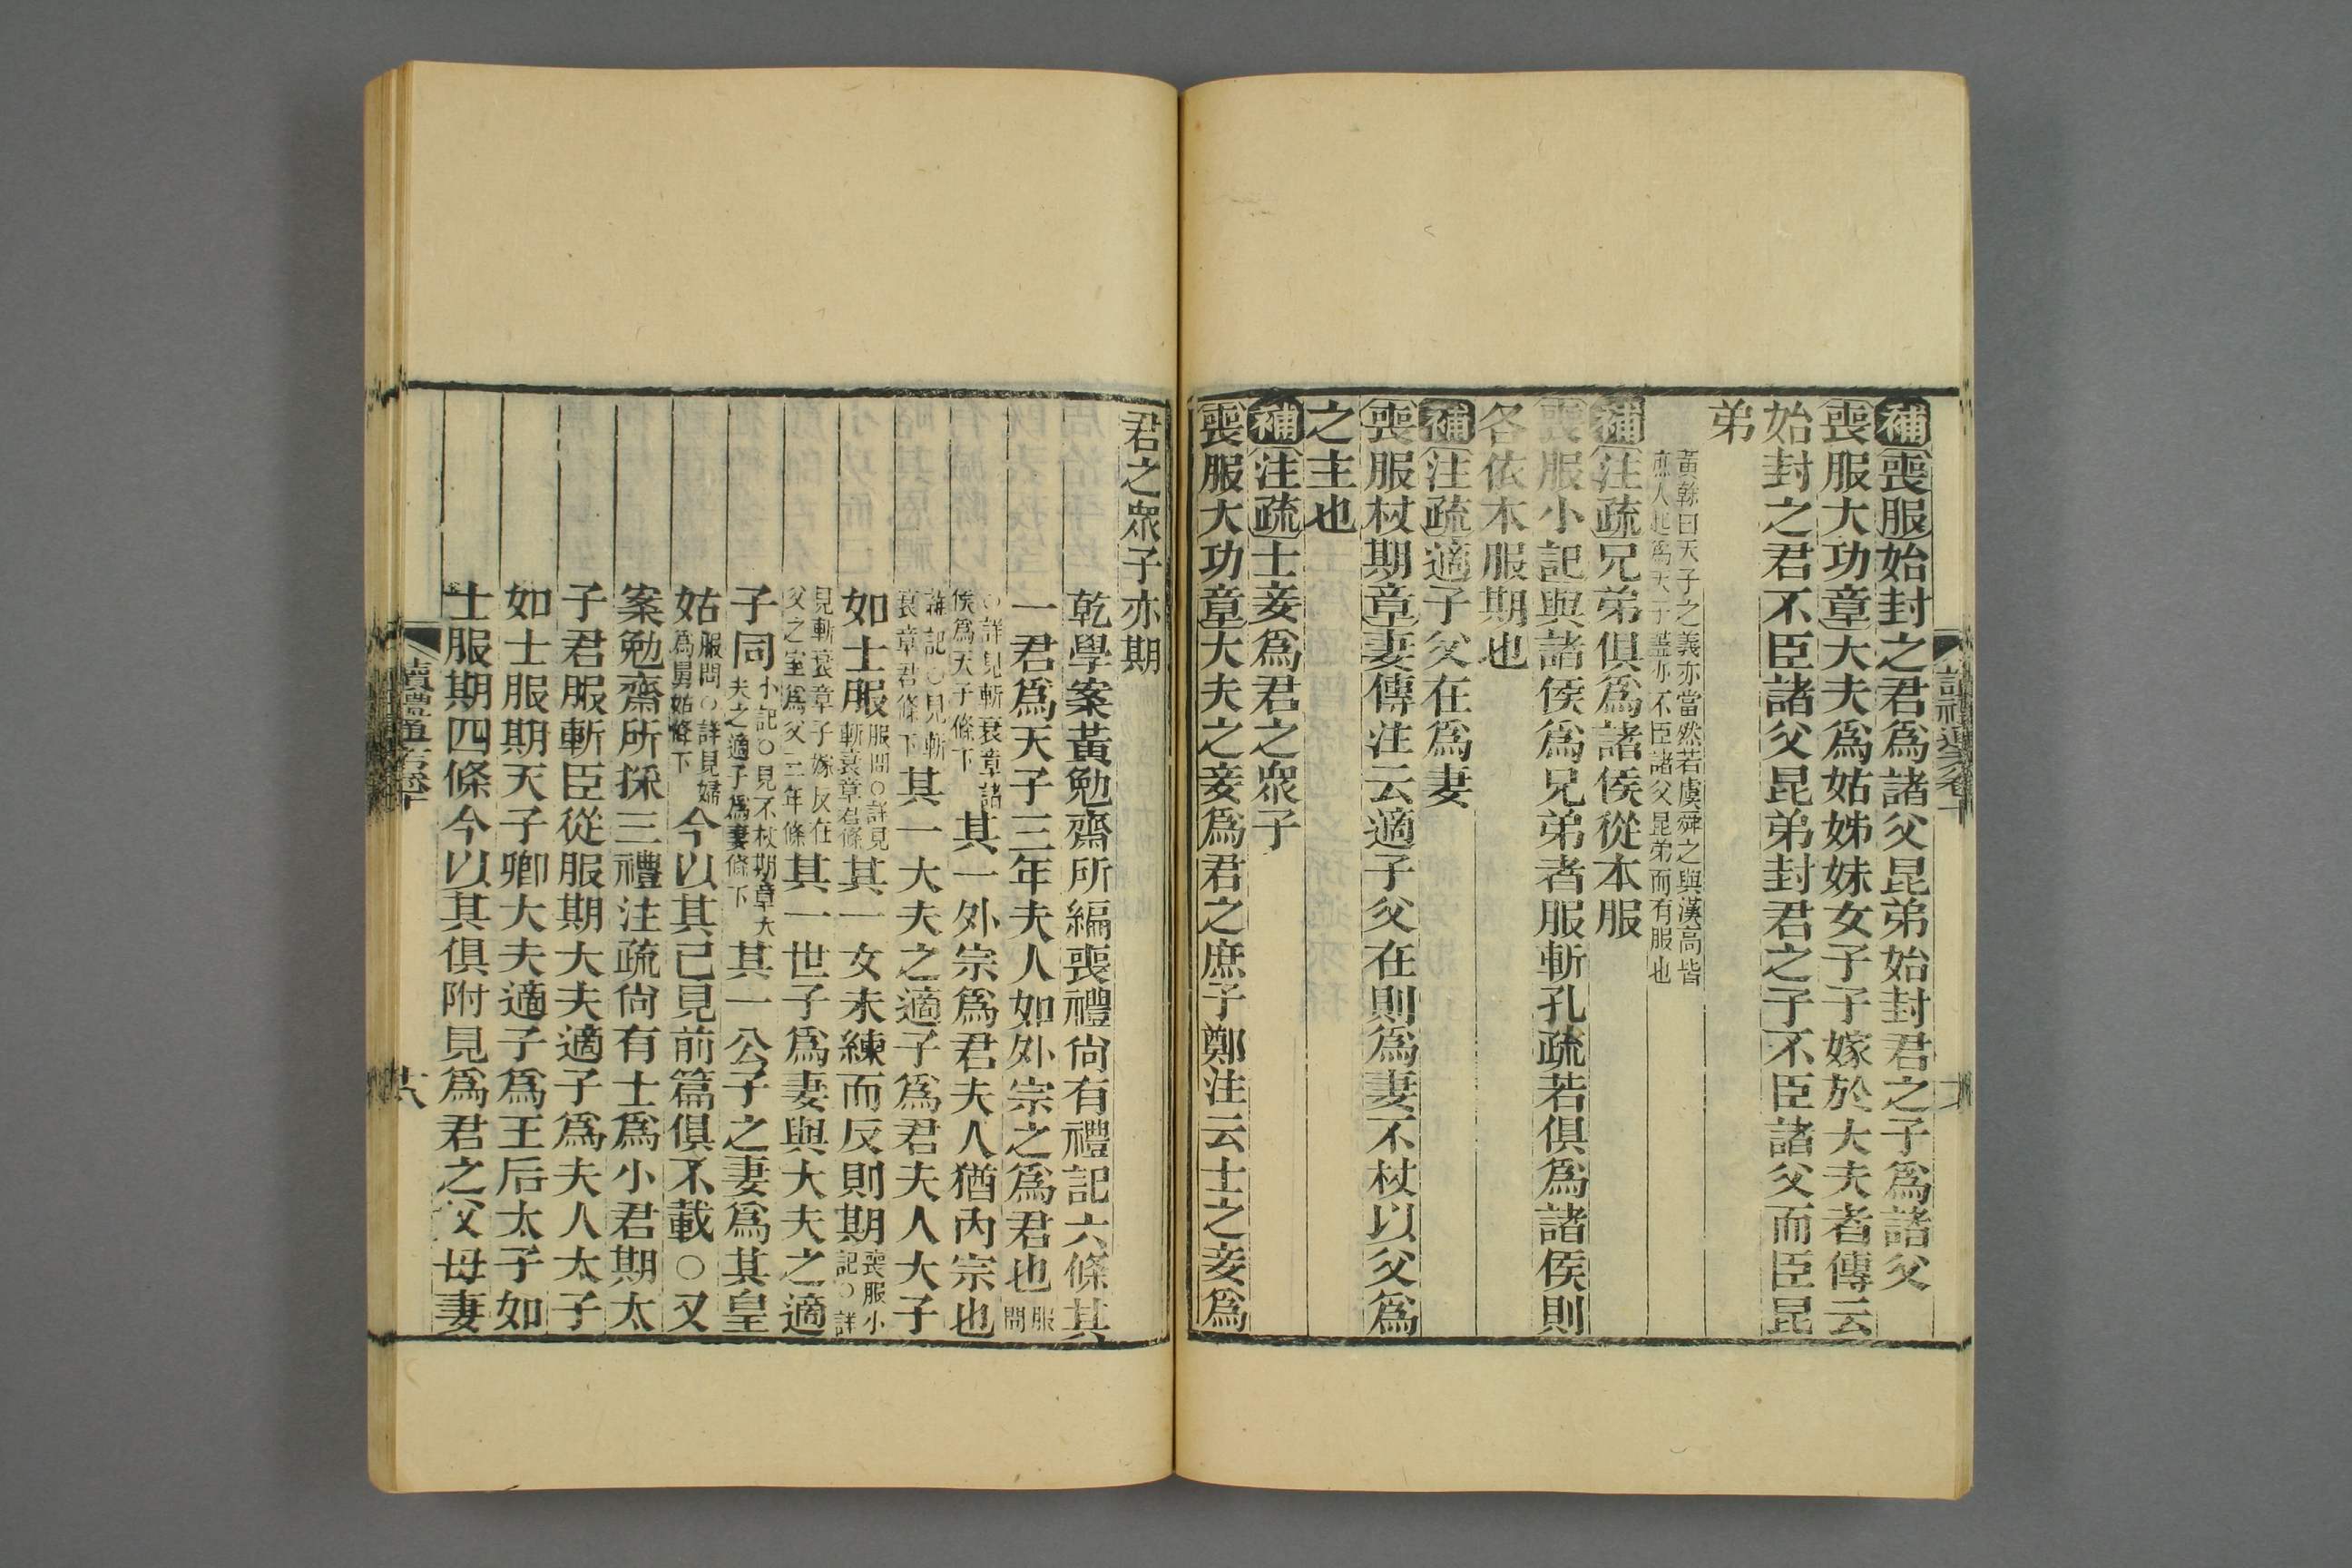 補喪服始封之君爲諸父昆弟始封君之子爲諸父
喪服大功章大夫爲姑姊妹女子子嫁於大夫者傳云
始封之君不臣諸父昆弟封君之子不臣諸父而臣昆
弟
黃榦曰天子之義亦當然若虞舜之與漢高皆
庶人起爲天子蓋亦不臣諸父昆弟而有服也
補注疏兄弟俱爲諸侯從本服
喪服小記與諸侯爲兄弟者服斬孔疏若俱爲諸侯則
各依本服期也
補注疏適子父在爲妻
喪服杖期章妻傳注云適子父在則爲妻不杖以父爲
之主也
補注疏士妾爲君之眾子
喪服大功章大夫之妾爲君之庶子鄭注云士之妾爲
君之眾子亦期
乾學案黃勉齋所編喪禮尙有禮記六條其
一君爲天子三年夫人如外宗之爲君也服問
○詳見斬衰章諸侯爲天子條下其一外宗爲君夫人猶內宗也
雜記○見斬衰章君條下其一大夫之適子爲君夫人大子
如士服服問○詳見斬衰章君條其一女未練而反則期喪服小記○詳
見斬衰章子嫁反在父之室爲父三年條其一世子爲妻與大夫之適
子同小記○見不杖期章大夫之適子爲妻條下其一公子之妻爲其皇
姑服問○詳見婦爲舅姑條下今以其已見前篇俱不載○又
案勉齋所採三禮注疏尙有士爲小君期太
子君服斬臣從服期大夫適子爲夫人太子
如士服期天子卿大夫適子爲王后太子如
士服期四條今以其俱附見爲君之父母妻
讀禮通考卷十